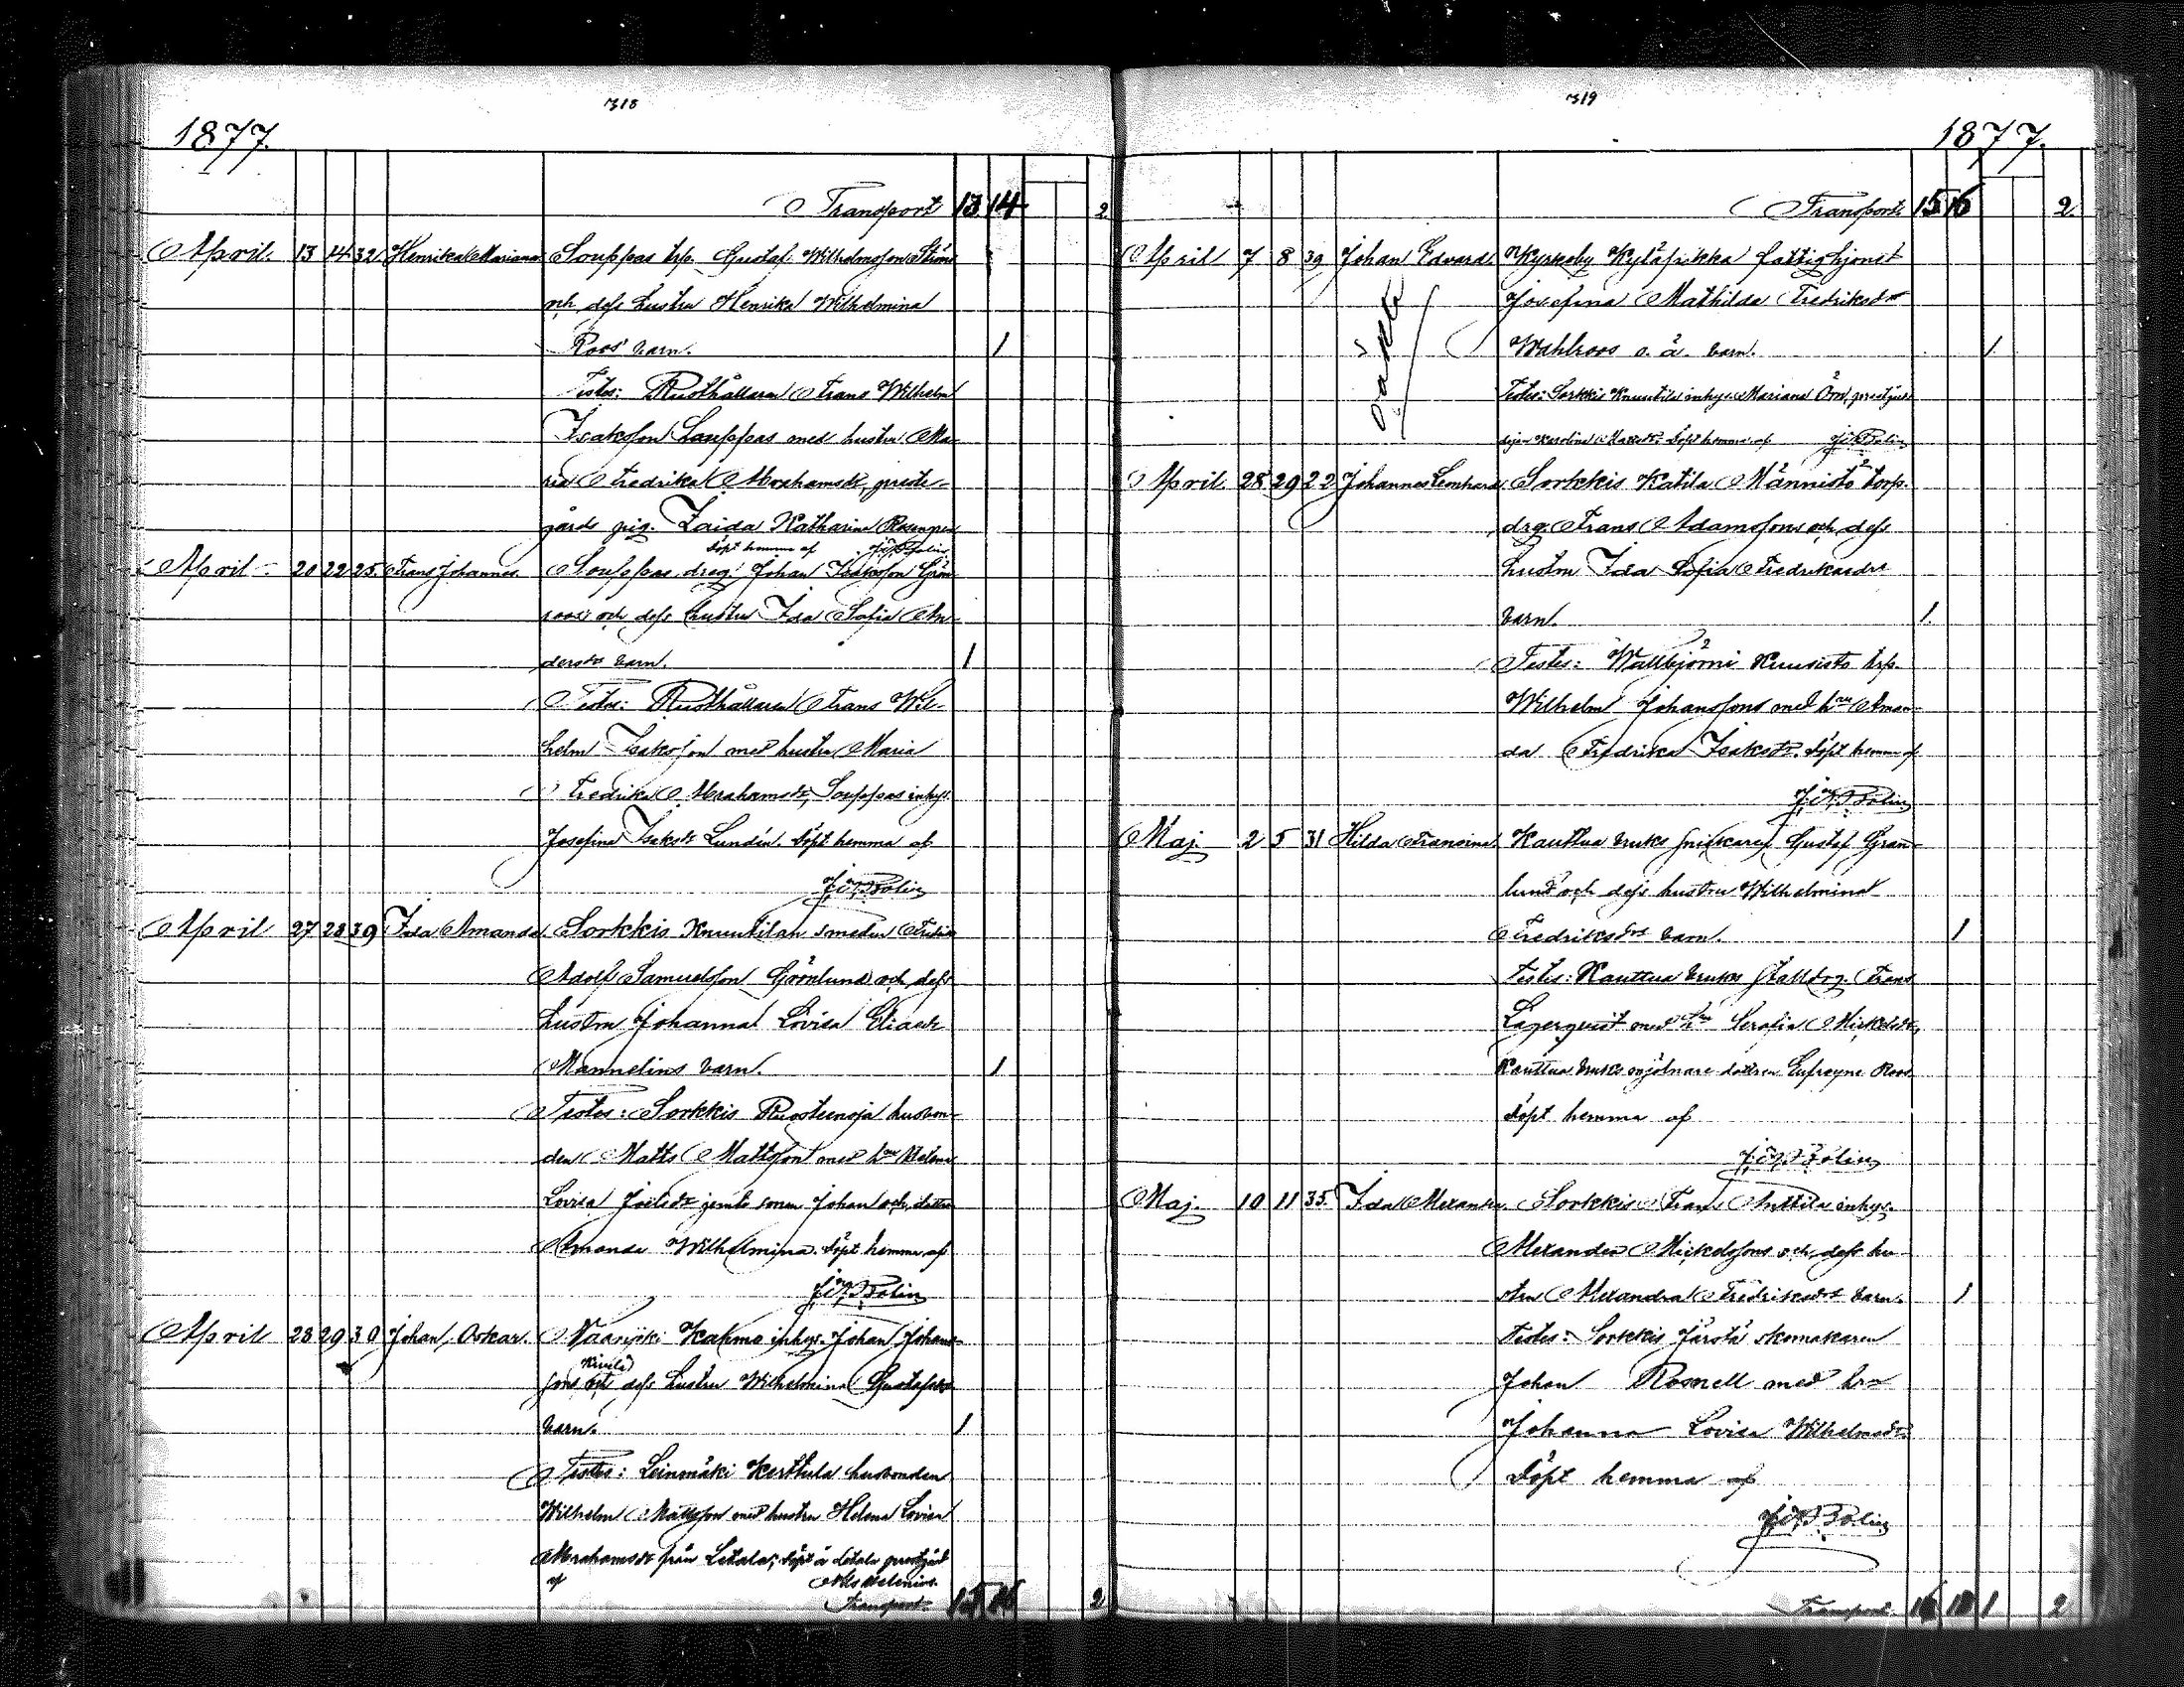 318
1877.
Transport 13 14 2
April. 13 14 32. Henrika Mariana Souppas trp. Gustaf Wilhelmsson
och dess hustru Henrika Wilhelmina
Roos' barn. 1
Testes: Rusthållaren Frans Wilhelm
Isaksson Souppas med hustru Ma-
ria Fredrika Abrahamsdr, preste-
gårds pig. Zaida Katharina Rosengren
döpt hemma af
April 20 22 25. Frans Johannes. Souppas dreng Johan Isaksson Grön
roos och dess hustru Ida Sofia An-
dersdrs barn. 1
Testes: Rusthållaren Frans Wil-
helm Isaksson med hustru Maria
Fredrika Abrahamsdr, Souppas inhys.
Josefina Isaksdr Lundén. döpt hemma af
April 27 28 39 Ida Amanda. Sorkkis Knuutilan smeden
Adolf Samuelsson Grönlund och dess
hustru Johanna Lovisa Eliaedr
Mannelins barn. 1
Testes: Sorkkis Ruostenoja husbon-
den Matts Mattsson med hru Helena
Lovisa Joelsdr jemte sonen Johan och dottren
Amanda Wilhelmina. döpt hemma af
April 28 29 30 Johan Oskar. Naarijoki Kahma inhys. Johan Johans-
sons och dess hustru Wilhelmina Gustafsdrs
barn. 1
Testes: Leinmäki Kerttula husbonden
Wilhelm Mattsson med hustru Helena Lovisa
Abrahamsdr från Letala; döpt å Letala prestgård
af
Transport. 15 16 2
319
1877.
Transport. 15 16 2
April 7 8 39 Johan Edvard. Kyrkoby Kyläpirkka fattighjonet
Josefina Mathilda Fredriksdr
Wahlroos o. ä. barn. 1
oäkta
Testes: Sorkkis Knuutila inhys. Mariana Örn, prestgårds
Karolina döpt hemma af
April 28 29 22 Johannes Leonhard. Sorkkis Katila Männistö torp.
drg. Frans Adamssons och dess
hustru Ida Sofia Fredriksdrs
barn. 1.
Testes: Wallbjörni Kuusisto trp.
Wilhelm Johanssons med hru Aman-
da Fredrika Isaksdr. döpt hemma af
Maj. 2 5 31 Hilda Fransina. Kauttua bruks snickaren Gustaf Grön-
lund och dess hustru Wilhelmina
Fredriksdrs barn. 1
Testes: Kauttua bruks stalldrg. Frans
Lagerqvist med hru Serafia Mickelsdr,
Kauttua bruks mjölnare dottren Eufrosyne Roos
döpt hemma af
Maj. 10 11 35. Ida Alexandra. Sorkkis Frans Anttila inhys.
Alexander Mickelssons och dess hu-
stru Alexandra Fredriksdrs barn. 1
Testes: Sorkkis Järstä skomakaren
Johan Rosnell med hru
Johanna Lovisa Wilhelmsdr.
döpt hemma af
Transport. 16 18 1 2